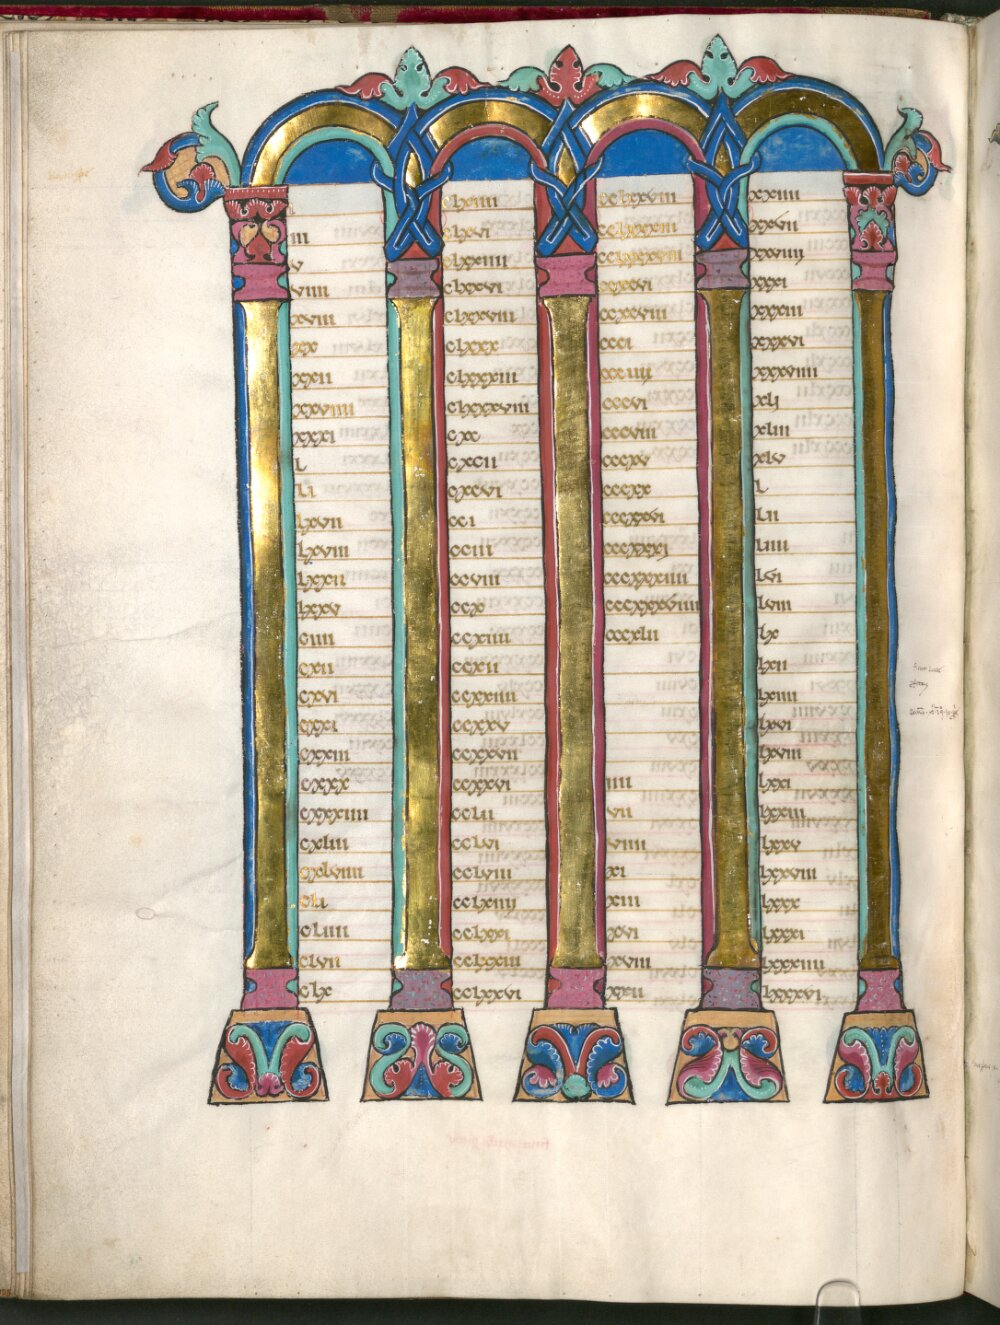 i
iii
v
viiii
xviii
xx
xxii
xxviiii
xxxi
L
Li
lxvii
lxviii
lxxii
lxxv
ciiii
cxii
cxvi
cxxi
cxxiii
cxxx
cxxxiiii
cxliii
cxlviiii
cLi
cLiiii
cLvii
clx
clxiiii
clxvi
clxxiiii
clxxvi
clxxviii
clxxx
clxxxiii
clxxxviii
cxc
cxcii
cxcvi
cci
cciii
ccviii
ccx
ccxiiii
ccxii
ccxxiiii
ccxxv
ccxxvii
ccxxxvi
ccLii
ccLvi
ccLviii
cclxiiii
cclxxi
cclxxiii
cclxxvi
cclxxviii
cclxxxiii
cclxxxviii
ccxcvi
ccxcviii
ccci
ccciiii
cccvi
cccviii
cccxv
cccxx
cccxxvi
cccxxxi
cccxxxiiii
cccxxxviiii
cccxlii
iiii
vii
viiii
xi
xiii
xvi
xviii
xxii
xxiiii
xxvii
xxviiii
xxxi
xxxiii
xxxvi
xxxviiii
xli
xliii
xlv
L
Lii
Liiii
Lvi
Lviii
lx
lxii
lxiiii
lxvi
lxviii
lxxi
lxxiii
lxxv
lxxviii
lxxx
lxxxi
lxxxiiii
lxxxvi